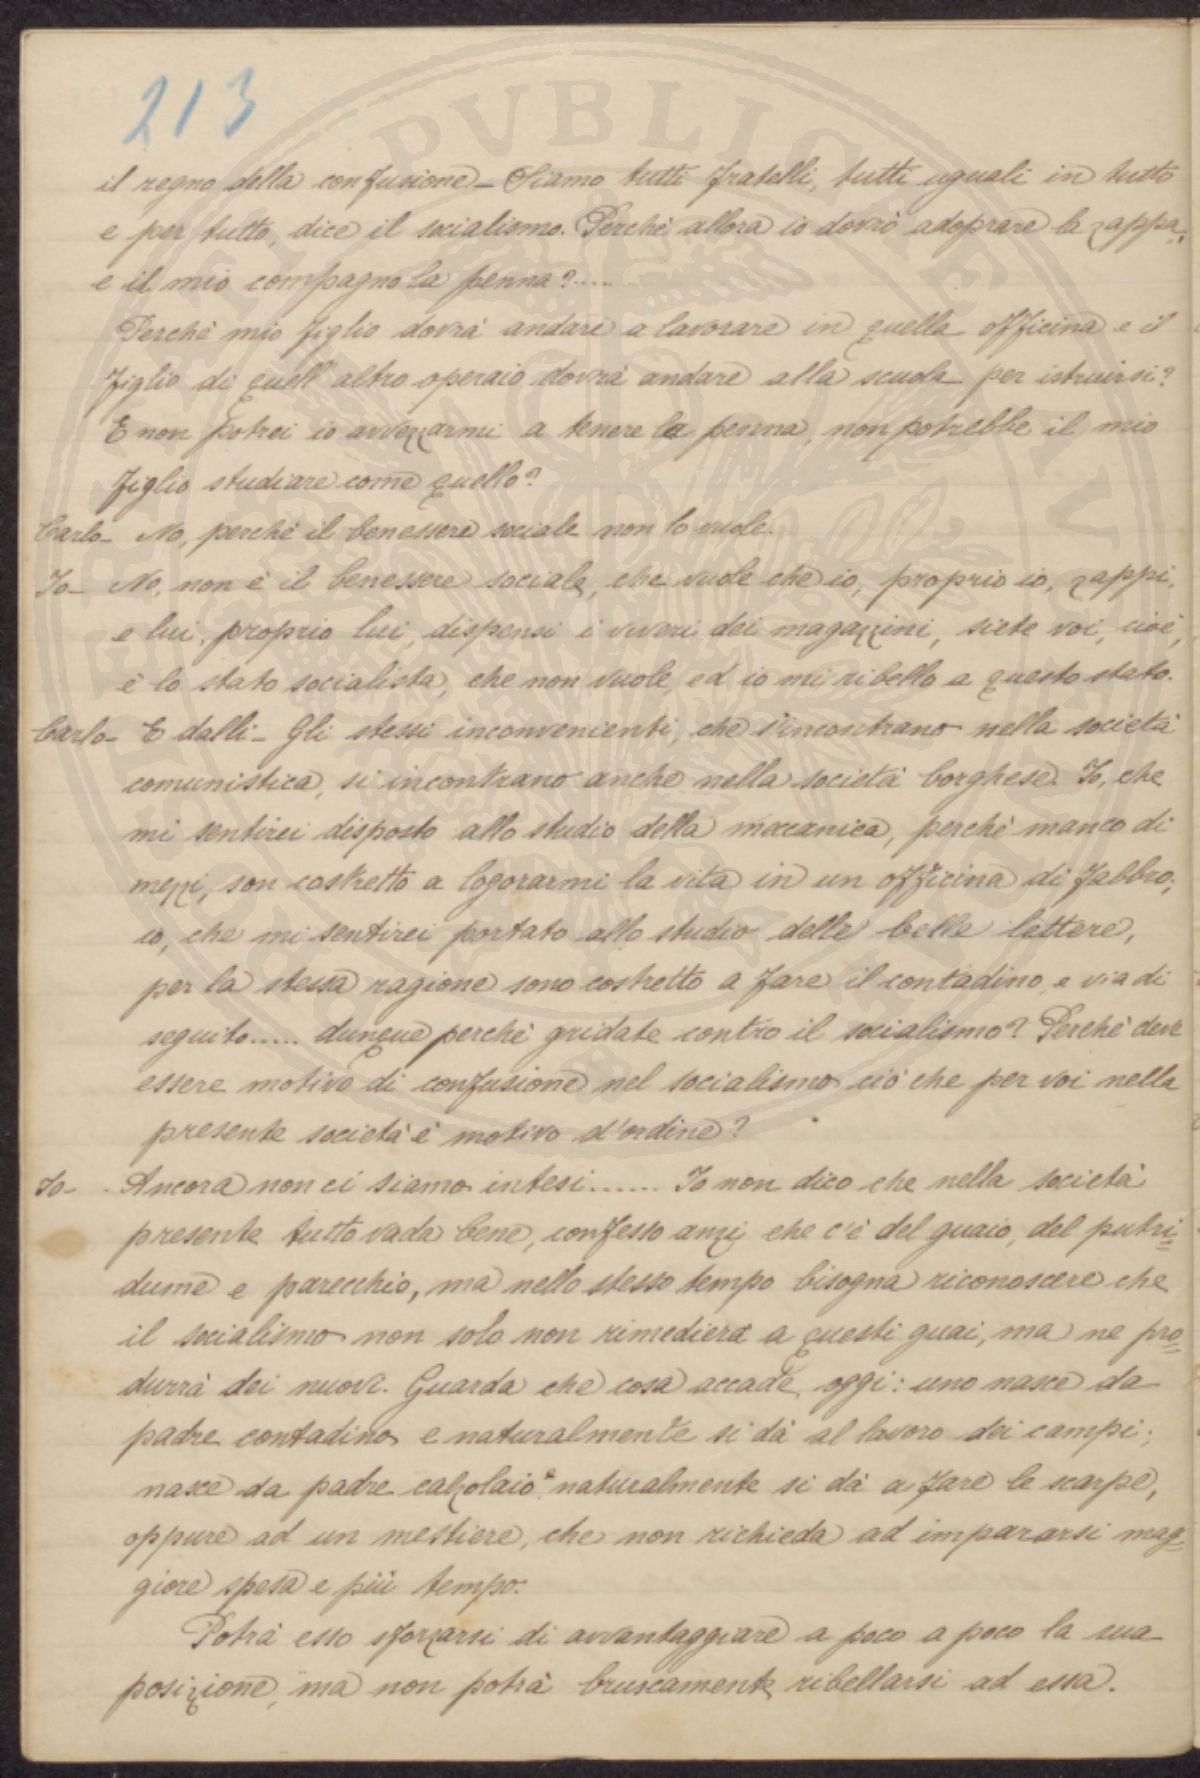 213
il regno della confusione_ Siamo tutti fratelli, tutti uguali in tutto
e per tutto, dice il socialismo. Perchè allora io dovrò adoprare la zappa,
e il mio compagno la penna?.....
Perchè mio figlio dovrà andare a lavorare in quella officina e il
figlio di quell'altro operaio dovrà andare alla scuola per istruirsi?
E non potrei io avvezzarmi a tenere la penna, non potrebbe il mio
figlio studiare come quello?
Carlo_ No, perchè il benessere sociale non lo vuole.
Io_ No, non è il benessere sociale, che vuole che io, proprio io, zappi,
e lui, proprio lui, dispensi i viveri dei magazzini, siete voi, cioè,
è lo stato socialista, che non vuole, ed io mi ribello a questo stato.
Carlo_ E dalli_ Gli stessi inconvenienti, che s'incontrano nella società
comunistica, si incontrano anche nella società borghese. Io, che
mi sentirei disposto allo studio della meccanica, perchè manco di
mezzi, son costretto a logorarmi la vita in un officina di fabbro;
io, che mi sentirei portato allo studio delle belle lettere,
per la stessa ragione sono costretto a fare il contadino, e via di
seguito..... dunque perchè gridate contro il socialismo? Perchè deve
essere motivo di confusione nel socialismo ciò che per voi nella
presente società è motivo d'ordine?
Io_ Ancora non ci siamo intesi...... Io non dico che nella società
presente tutto vada bene, confesso anzi che c'è del guaio, del putri=
dume e parecchio, ma nello stesso tempo bisogna riconoscere che
il socialismo non solo non rimedierà a questi guai, ma ne pro=
durrà dei nuovi. Guarda che cosa accade oggi: uno nasce da
padre contadino e naturalmente si dà al lavoro dei campi;
nasce da padre calzolaio e naturalmente si dà a fare le scarpe,
oppure ad un mestiere, che non richieda ad impararsi mag=
giore spesa e più tempo.
Potrà esso sforzarsi di avvantaggiare a poco a poco la sua
posizione, ma non potrà bruscamente ribellarsi ad essa.